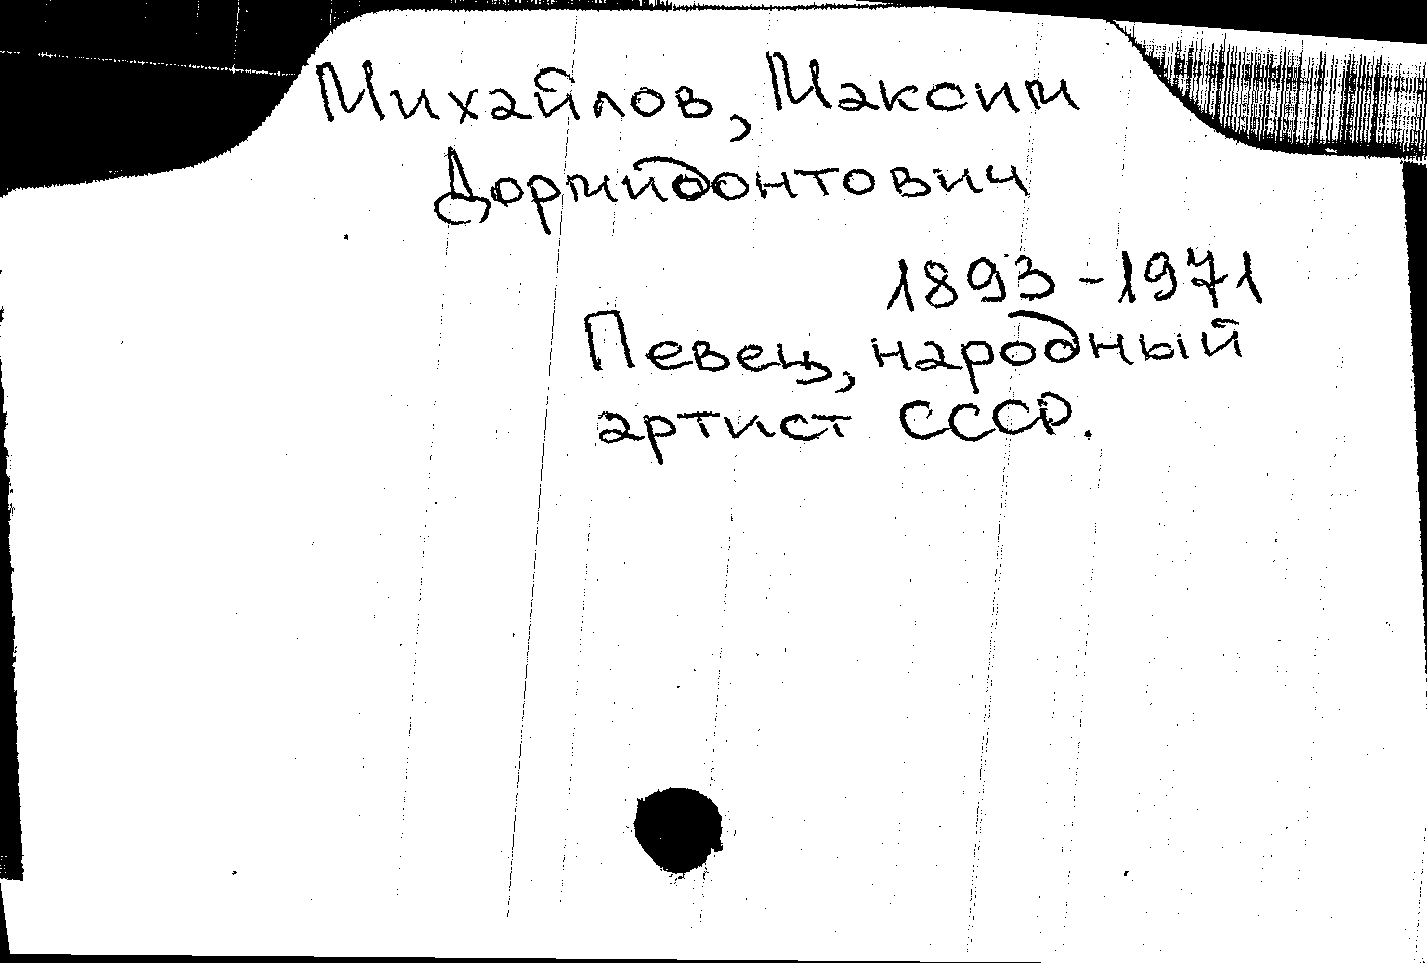 Михайлов, Максим
Дормидонтович
1893-1971
Певец, народный
артист СССР.